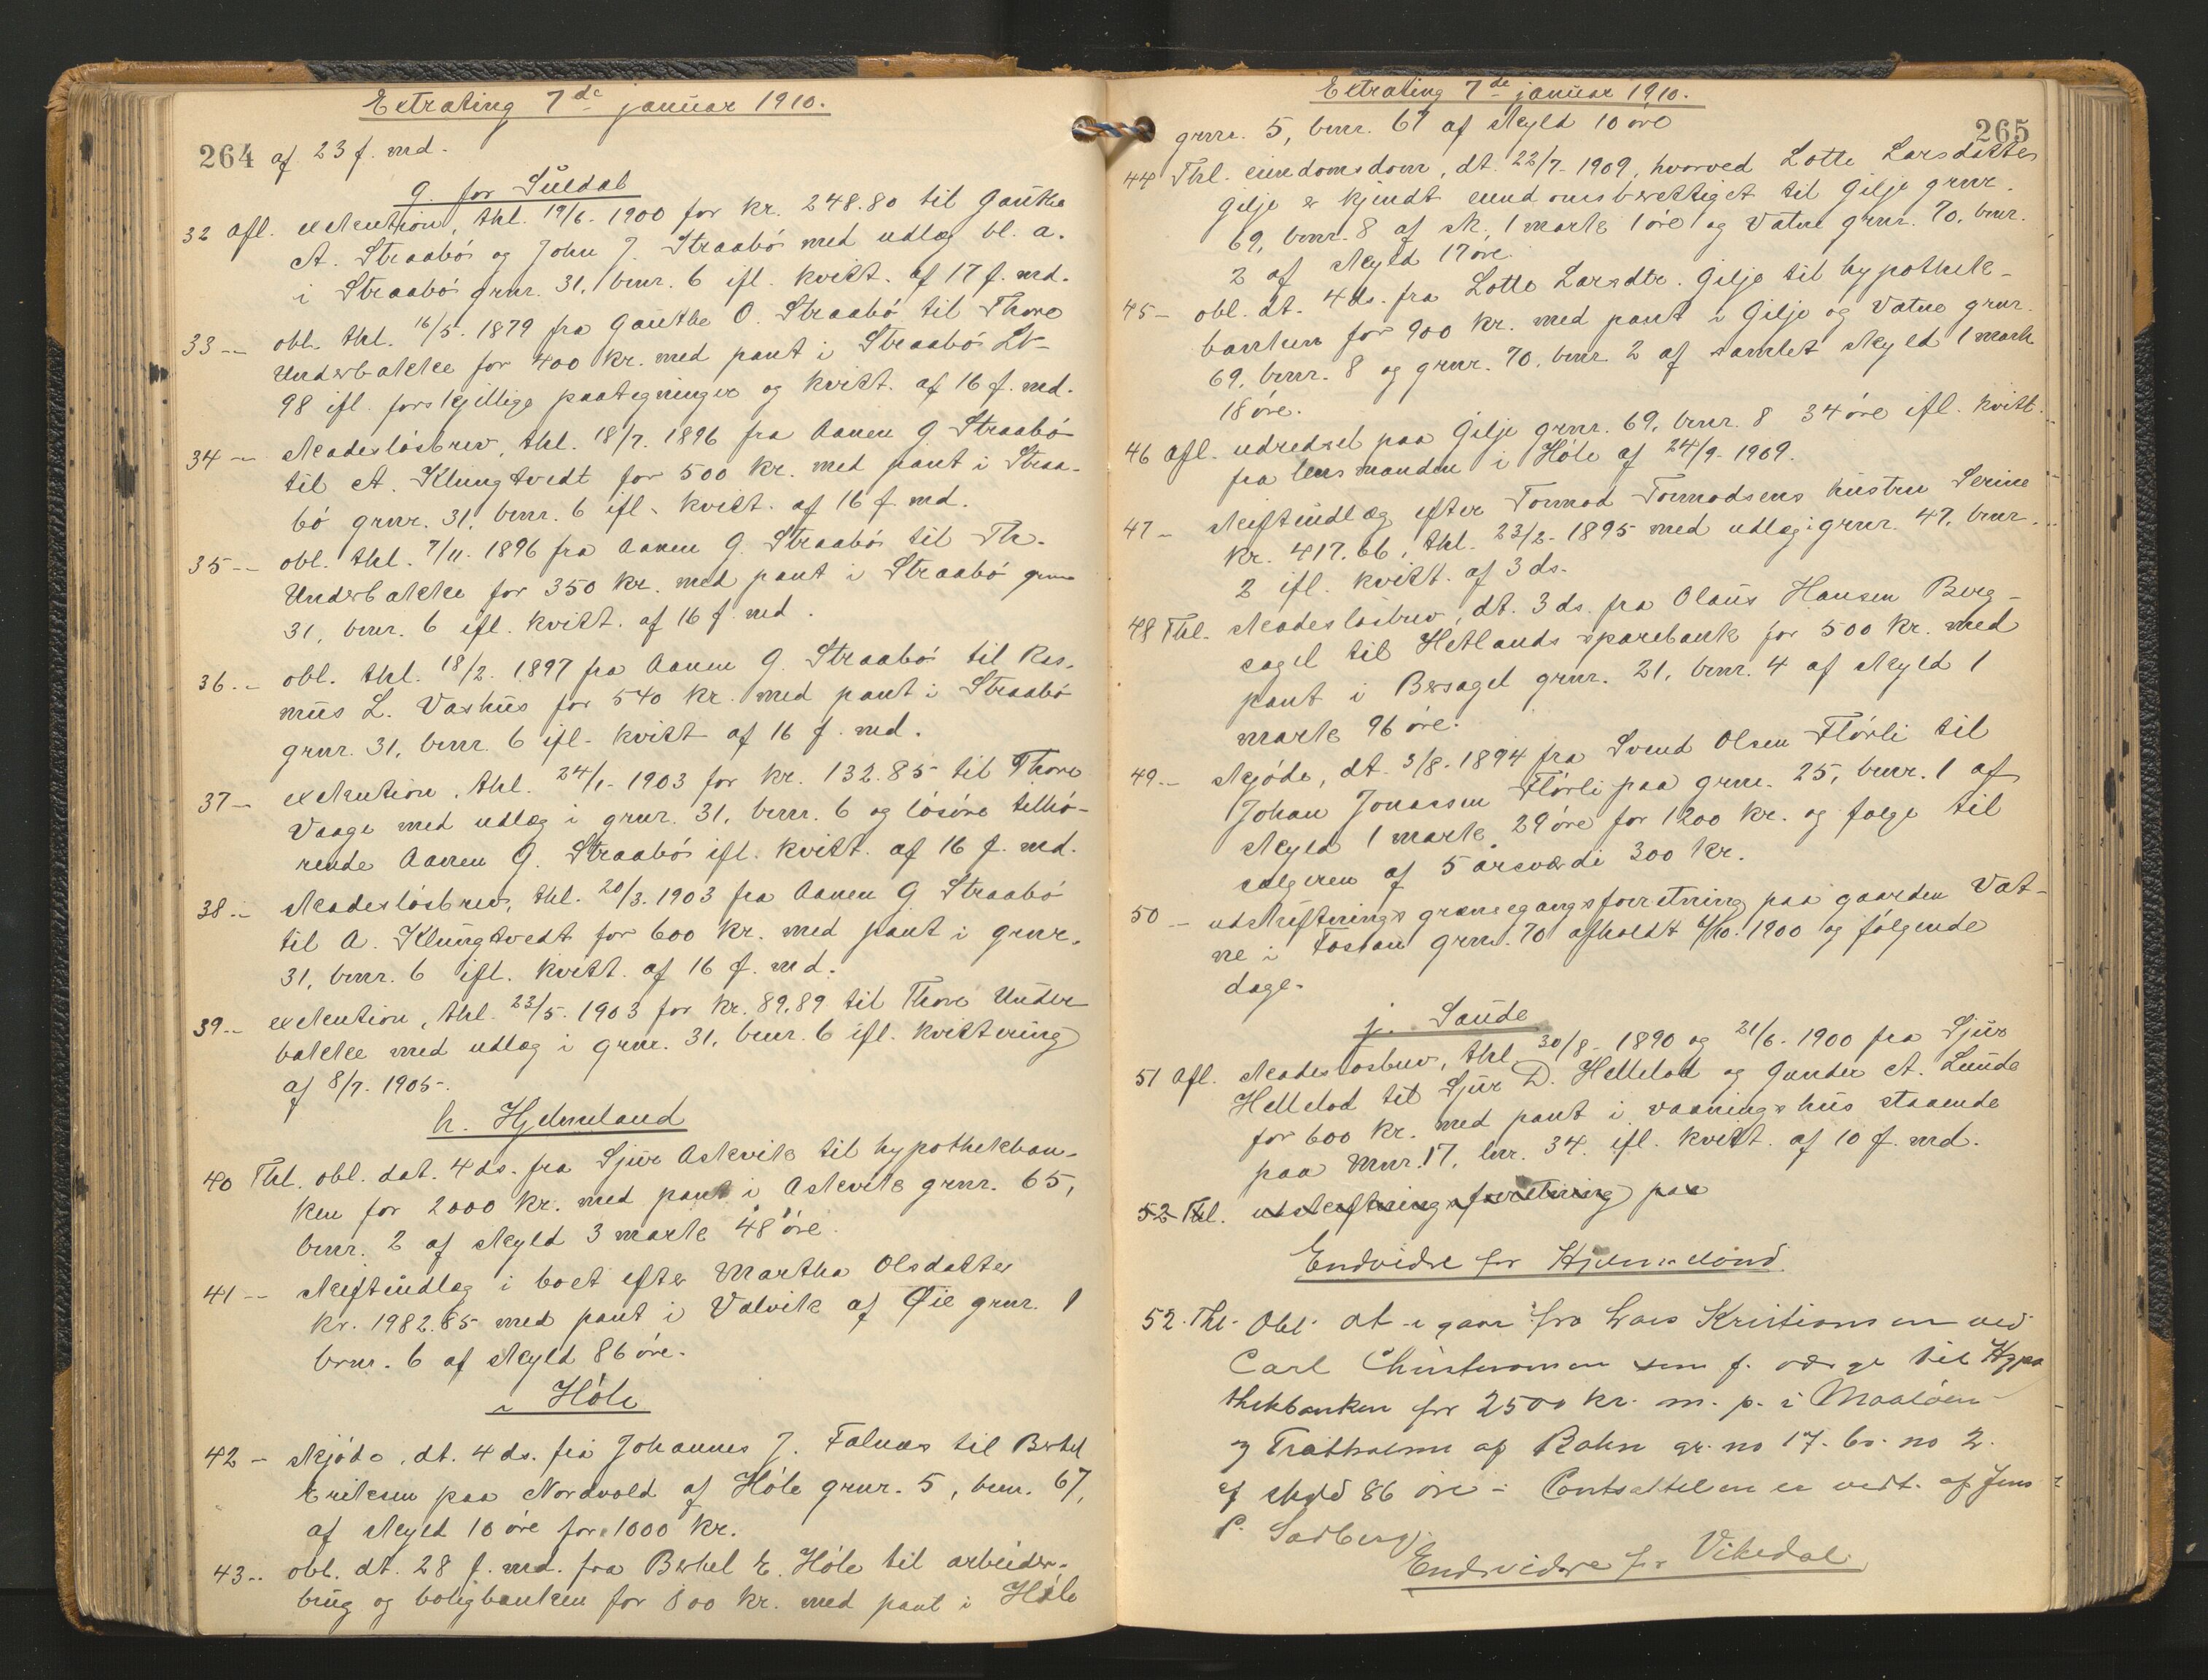 Extrating 7de januar 1910.
264 af 23 f. md.
g. for Suldal
32 Afl. exekution, thl. 19/6. 1900 for kr. 248.80 til Gauthe
A. Straabø og John J. Straabø med udlæg bl. a.
i Straabø grnr. 31, brnr. 6 ifl. kvitt. af 17 f. md.
33 -- obl. thl. 16/5. 1879 fra Gauthe O. Straabø til Thore
Underbakke for 400 kr. med pant i Straabø Lb
98 ifl. forskjellige paategninger og kvitt. af 16 f. md.
34 -- skadesløsbrev, thl. 18/7. 1896 fra Aanen G. Straabø
til A. Klungtvedt for 500 kr. med pant i Straa-
bø grnr. 31, brnr. 6 ifl. kvitt. af 16 f. md.
35 -- obl. thl. 7/11. 1896 fra Aanen G. Straabø til Th.
Underbakke for 350 kr. med pant i Straabø grnr
31, brnr. 6 ifl. kvitt. af 16 f. md.
36 -- obl. thl. 18/2. 1897 fra Aanen G. Straabø til Ras-
mus L. Vashus for 540 kr. med pant i Straabø
grnr. 31, brnr. 6 ifl. kvitt af 16 f. md.
37 -- exekution, thl. 24/1. 1903 for kr. 132.85 til Thore
Vaage med udlæg i grnr. 31, brnr. 6 og løsøre tilhø-
rende Aanen G. Straabø ifl. kvitt. af 16 f. md.
38 -- skadesløsbrev, thl. 20/3. 1903 fra Aanen G. Straabø
til A. Klungtvedt for 600 kr. med pant i grnr.
31, brnr. 6 ifl. kvitt. af 16 f. md.
39 -- exekution, thl. 23/5. 1903 for kr. 89,89 til Thore Under
bakke med udlæg i grnr. 31, brnr. 6 ifl. kvittering
af 8/7. 1905.
h. Hjelmeland
40 Thl. obl. dat. 4 ds. fra Sjur Askvik til hypothekban-
ken for 2000 kr. med pant i Askvik grnr. 65,
brnr. 2 af skyld 3 mark 48 øre.
41 -- skiftudlæg i boet efter Martha Olsdatter
kr. 1982.85 med pant i Valvik af Øie grnr. 1
brnr. 6 af skyld 86 øre.
i Høle
42 - skjøde, dt. 4 ds. fra Johannes J. Falnæs til Berthel
Eriksen paa Nordvold af Høle grnr. 5, brnr. 67,
af skyld 10 øre for 1000 kr.
43 -- obl. dt. 28 f. md. fra Berthel E. Høle til arbeider-
brug og boligbanken for 800 kr. med pant i Høle
Extrating 7de januar 1910.
265
grnr. 5, brnr. 67 af skyld 10 øre
44 Thl. eiendomsdom, dt. 22/7. 1909, hvorved Lotte Larsdatter
Gilje er kjendt eiendomsberettiget til Gilje grnr.
69, brnr. 8 af sk. 1 mark 1 øre og Vatne grnr. 70, brnr.
2 af skyld 17 øre.
45 - obl. dt. 4 ds. fra Lotte Larsdtr. Gilje til hypothek-
banken for 900 kr. med pant i Gilje og Vatne grnr.
69, brnr. 8 og grnr. 70, brnr. 2 af samlet skyld 1 mark
18 øre.
46 Afl. udredsel paa Gilje grnr. 69, brnr. 8 34 øre ifl. kvitt.
fra lensmanden i Høle af 24/9. 1909.
47 - skiftudlæg efter Tormod Tormodsens hustru Serine
kr. 417.66, thl. 23/2. 1895 med udlæg i grnr. 47, brnr.
2 ifl. kvitt. af 3 ds.
48 Thl. skadesløsbrev, dt. 3 ds. fra Olaus Hansen Berg-
sagel til Hetlands sparebank for 500 kr. med
pant i Bersagel grnr. 21, brnr. 4 af skyld 1
mark 96 øre.
49 -- skjøde, dt. 3/8. 1894 fra Svend Olsen Flørli til
Johan Jonassen Flørli paa grnr. 25, brnr. 1 af
skyld 1 mark 29 øre for 1200 kr. og følge til
sælgeren af 5 årsværdi 300 kr.
50 - udskiftnings grænsegangsforretning paa gaarden Vat-
ne i Fossan grnr. 70 afholdt 4/10. 1900 og følgende
dage.
j. Saude
51 Afl. skadesløsbrev, thl. 30/8. 1890 og 21/6. 1900 fra Sjur
Hellelod til Sjur D. Hellelod og Gunder A. Lunde
for 600 kr. med pant i vaaningshus staaende
paa Mnr. 17, lnr. 34. ifl. kvitt. af 10 f. md.
52 Thl. udskiftningsforretning paa
Endvidre for Hjelmeland
52. Thl. Obl. dt i gaar fra Lars Kristiansen ved
Carl Christensen som f. værge til Hypo
thekbanken for 2500 kr. m. p. i Maaløen
og Tratholmen af Rahn gr. no 17. br. no 2.
af skyld 86 øre. - Pantsættelsen er vedt. af Jens
P. Sadberg.
Endvidere for Vikedal.